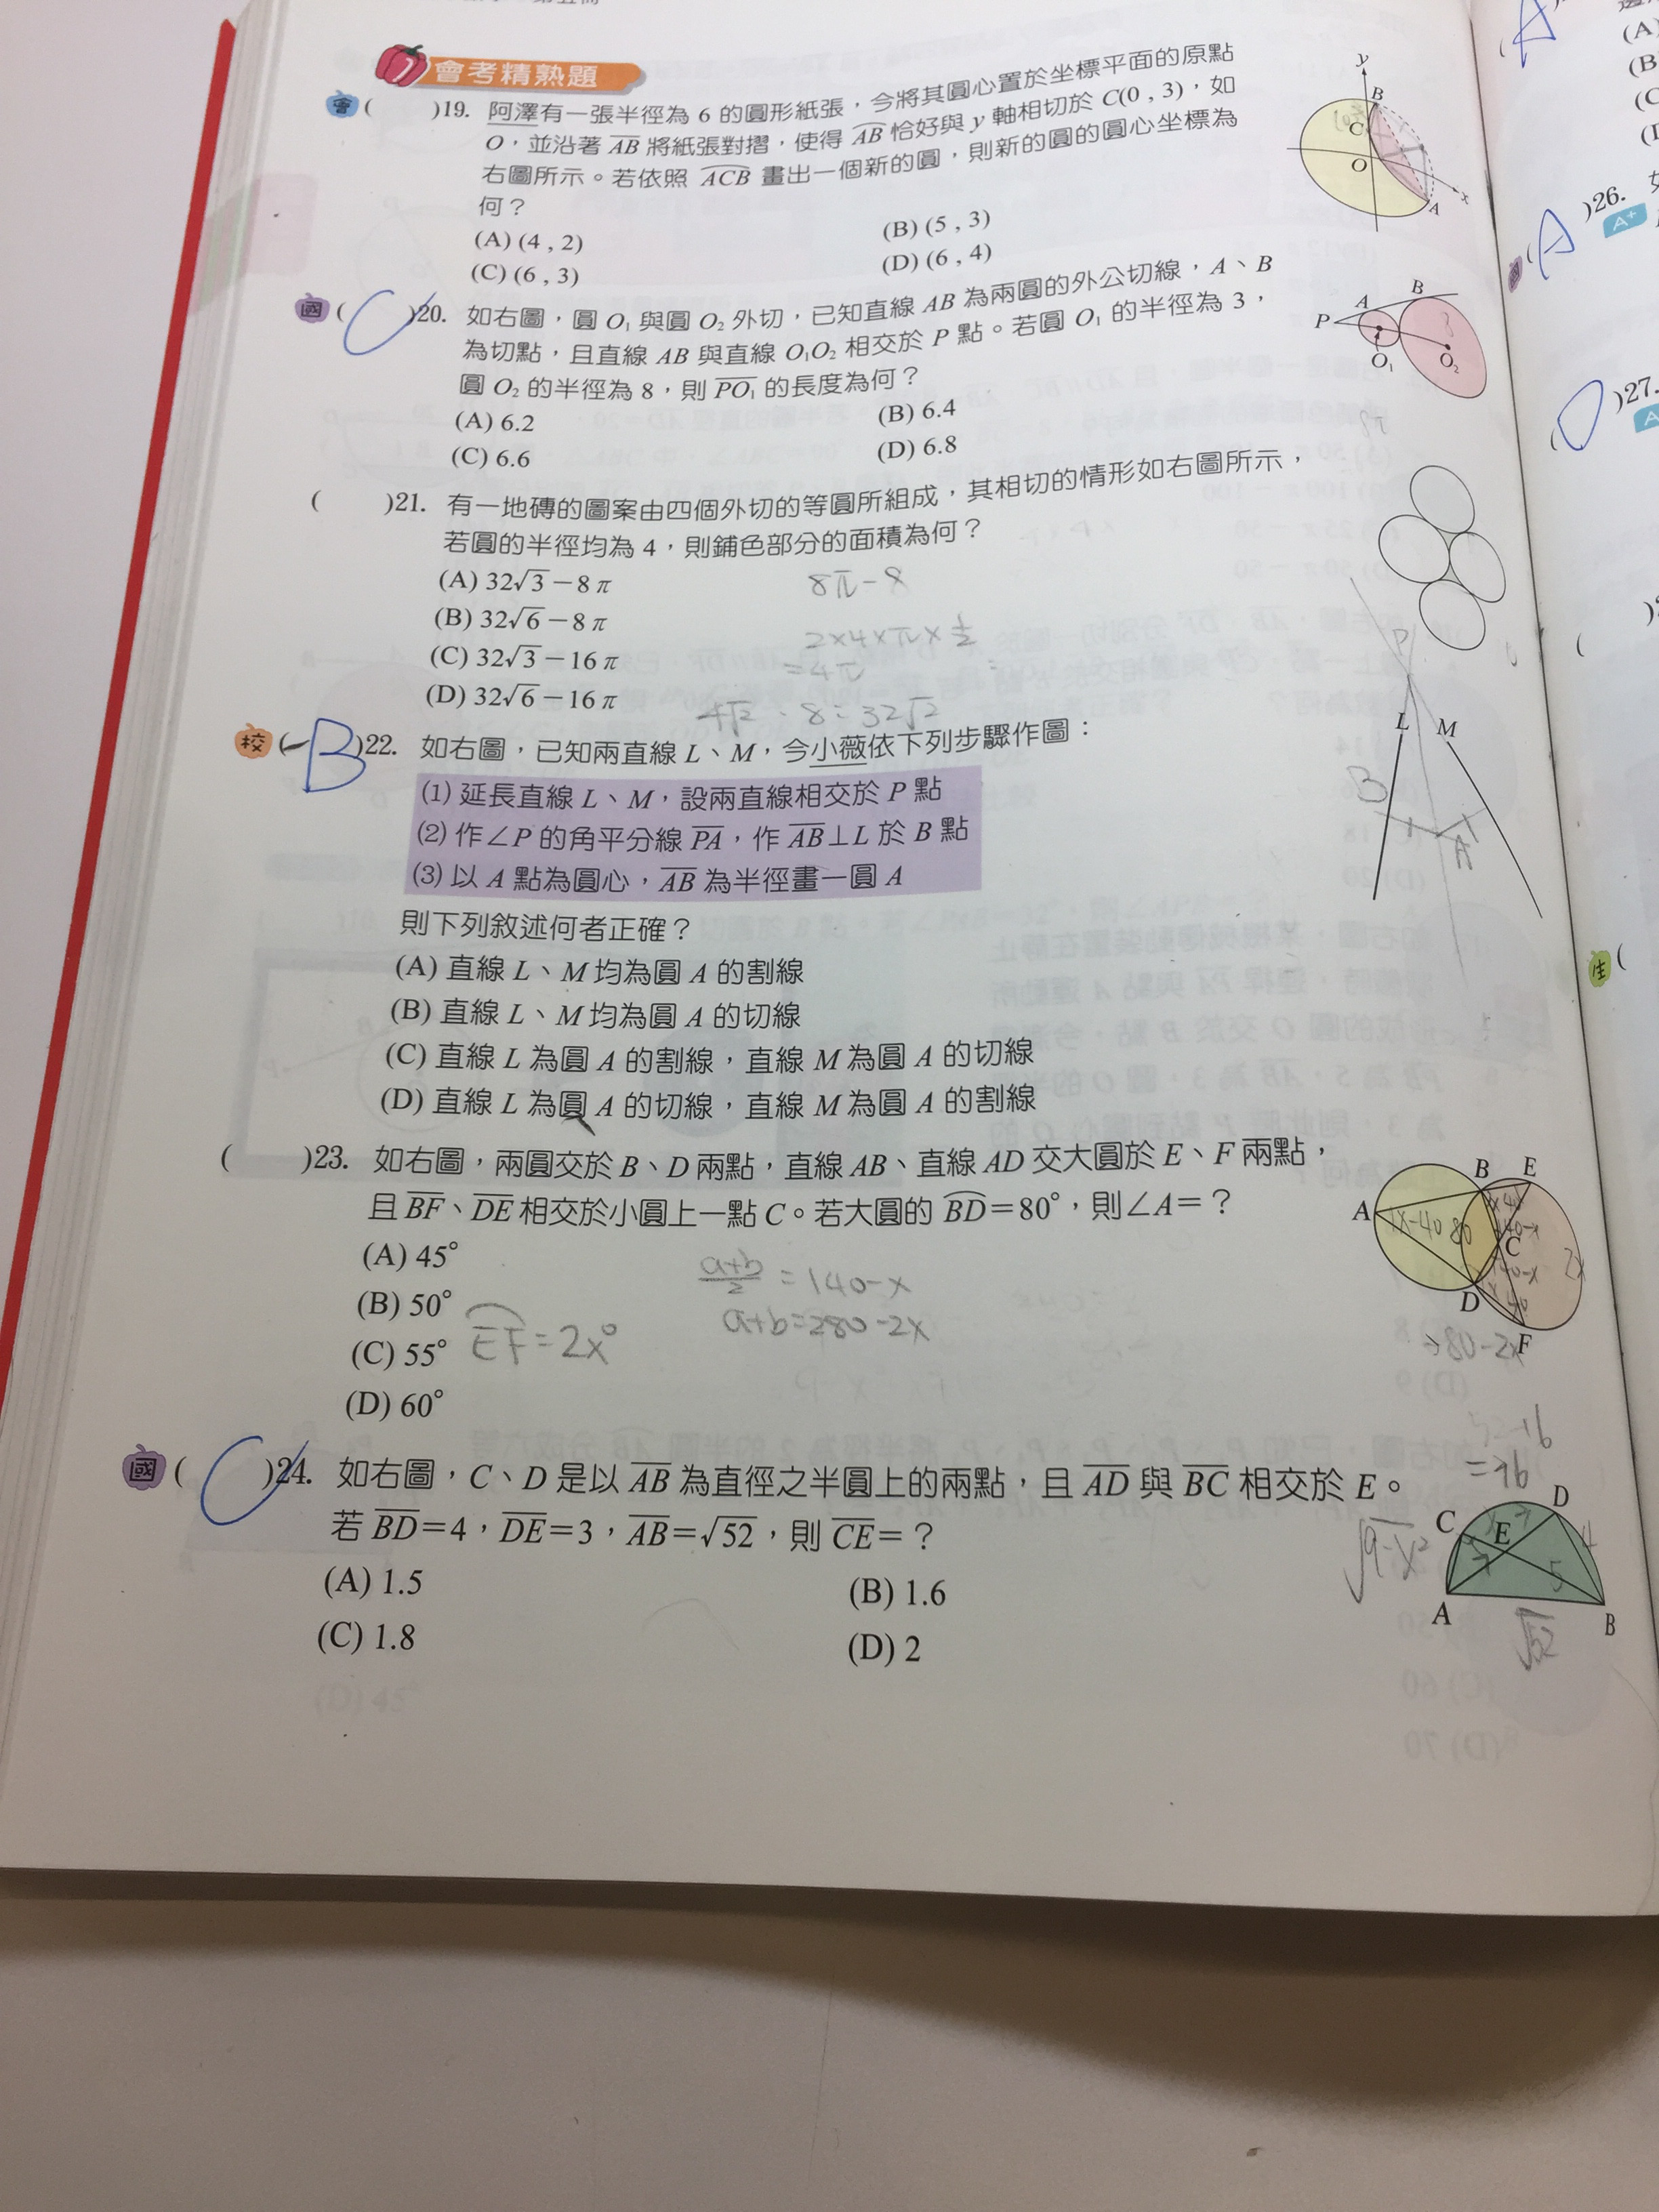 會考精熟題
會( )19. 阿澤有一張半徑為 6 的圓形紙張，今將其圓心置於坐標平面的原點
O，並沿著 AB 將紙張對摺，使得 AB 恰好與 y 軸相切於 C(0 , 3)，如
右圖所示。若依照 ACB 畫出一個新的圓，則新的圓的圓心坐標為
何？
(A) (4 , 2) (B) (5 , 3)
(C) (6 , 3) (D) (6 , 4)
y
B
C
O
A
x
國( C )20. 如右圖，圓 O₁ 與圓 O₂ 外切，已知直線 AB 為兩圓的外公切線，A、B
為切點，且直線 AB 與直線 O₁O₂ 相交於 P 點。若圓 O₁ 的半徑為 3，
圓 O₂ 的半徑為 8，則 PO₁ 的長度為何？
(A) 6.2 (B) 6.4
(C) 6.6 (D) 6.8
A B
P
O₁ O₂
8
( )21. 有一地磚的圖案由四個外切的等圓所組成，其相切的情形如右圖所示，
若圓的半徑均為 4，則鋪色部分的面積為何？
(A) 32√3－8π
(B) 32√6－8π
(C) 32√3－16π
(D) 32√6－16π
8π－8
2×4×π×½
=4π
4√2 · 8 = 32√2
校( B )22. 如右圖，已知兩直線 L、M，今小薇依下列步驟作圖：
(1) 延長直線 L、M，設兩直線相交於 P 點
(2) 作∠P 的角平分線 PA，作 AB⊥L 於 B 點
(3) 以 A 點為圓心，AB 為半徑畫一圓 A
則下列敘述何者正確？
(A) 直線 L、M 均為圓 A 的割線
(B) 直線 L、M 均為圓 A 的切線
(C) 直線 L 為圓 A 的割線，直線 M 為圓 A 的切線
(D) 直線 L 為圓 A 的切線，直線 M 為圓 A 的割線
P
L M
B
A
( )23. 如右圖，兩圓交於 B、D 兩點，直線 AB、直線 AD 交大圓於 E、F 兩點，
且 BF、DE 相交於小圓上一點 C。若大圓的 BD＝80°，則∠A＝？
(A) 45°
(B) 50°
(C) 55°
(D) 60°
EF=2x°
a+b/2 = 140-x
a+b=280-2x
B E
A
x-40 80
C
2x
D
F
國( C )24. 如右圖，C、D 是以 AB 為直徑之半圓上的兩點，且 AD 與 BC 相交於 E。
若 BD＝4，DE＝3，AB＝√52，則 CE＝？
(A) 1.5 (B) 1.6
(C) 1.8 (D) 2
52-16
=36
√9-x²
D
C
E
4
5
A
B
√52
A
(A)
(B
(C
A )26.
A+
)27.
生(